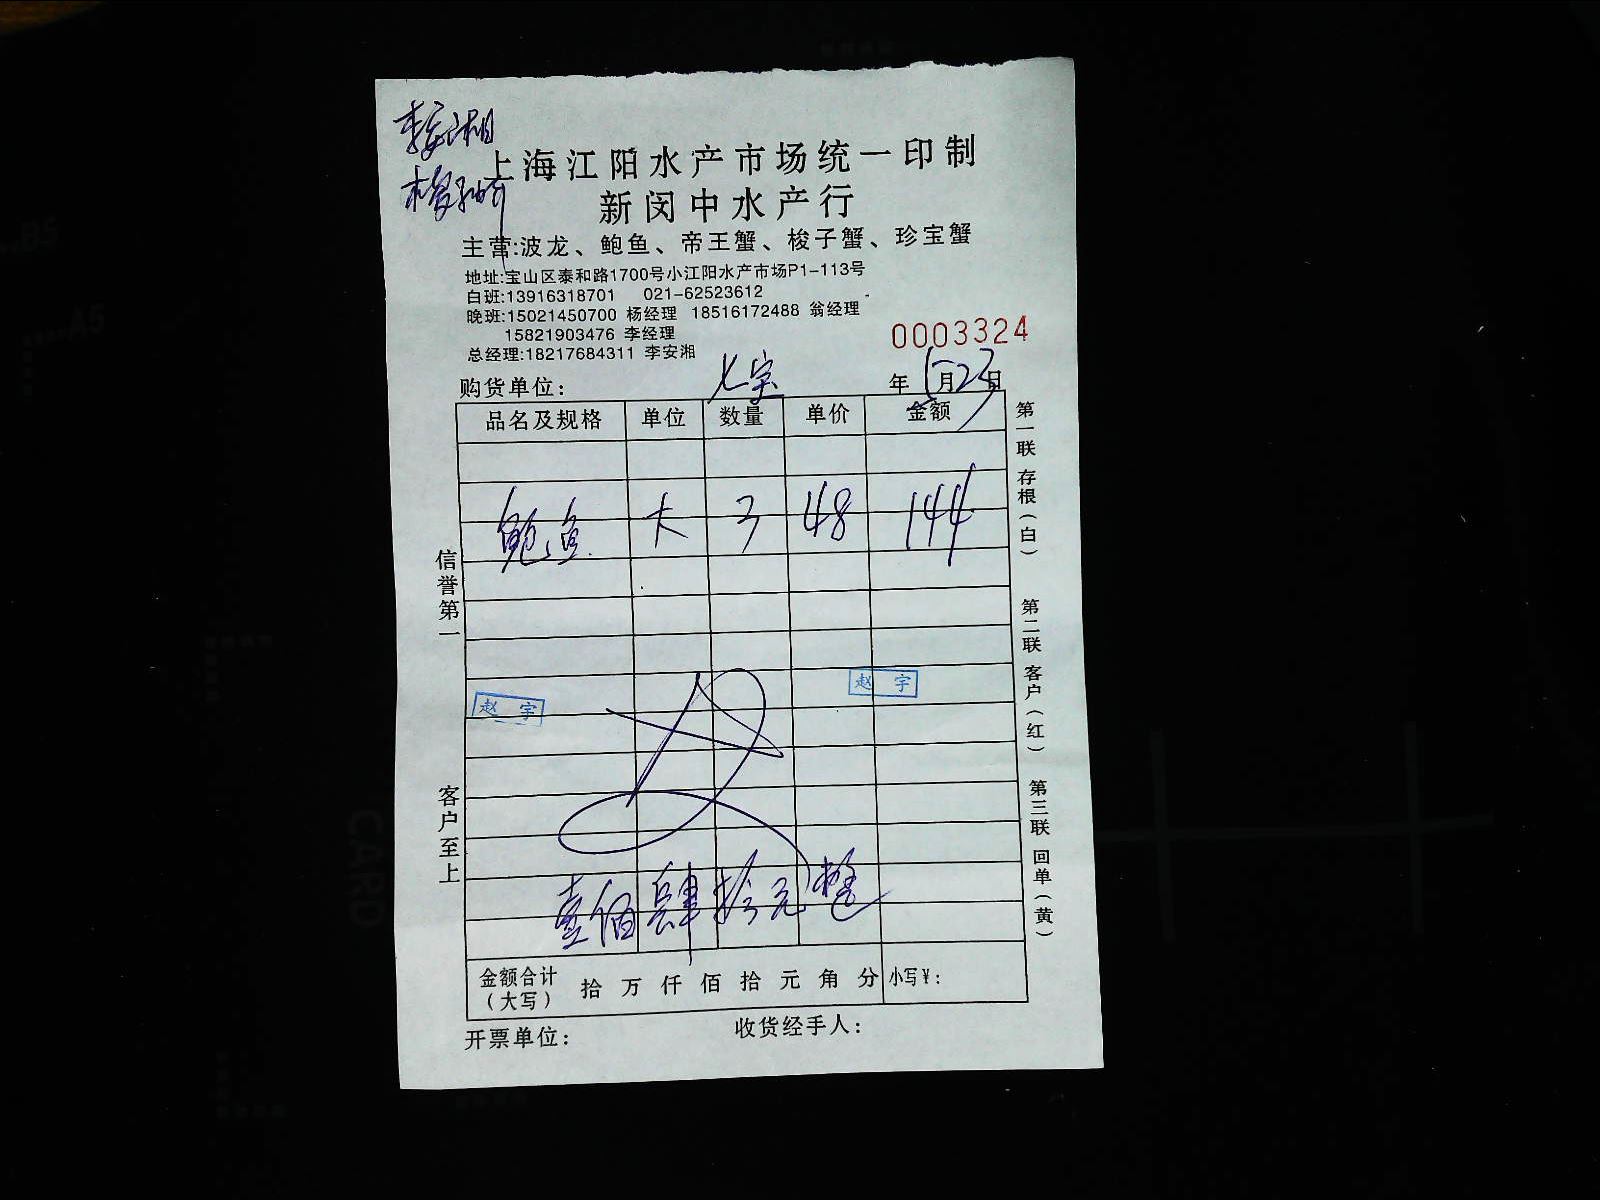 李安湘
上海江阳水产市场统一印制
新闵中水产行
主营:波龙、鲍鱼、帝王蟹、梭子蟹、珍宝蟹
地址:宝山区泰和路1700号小江阳水产市场P1-113号
白班:13916318701 021-62523612
晚班:15021450700 杨经理 18516172488 翁经理
15821903476 李经理
0003324
总经理:18217684311 李安湘
购货单位: 七宝 年 月23日
品名及规格 单位 数量 单价 金额
鲍鱼 大 3 48 144
赵宇
赵宇
壹佰肆拾元整
金额合计(大写) 拾 万 仟 佰 拾 元 角 分 小写¥:
开票单位: 收货经手人:
信誉第一 客户至上
第一联 存根(白) 第二联 客户(红) 第三联 回单(黄)
B5
A5
CARD